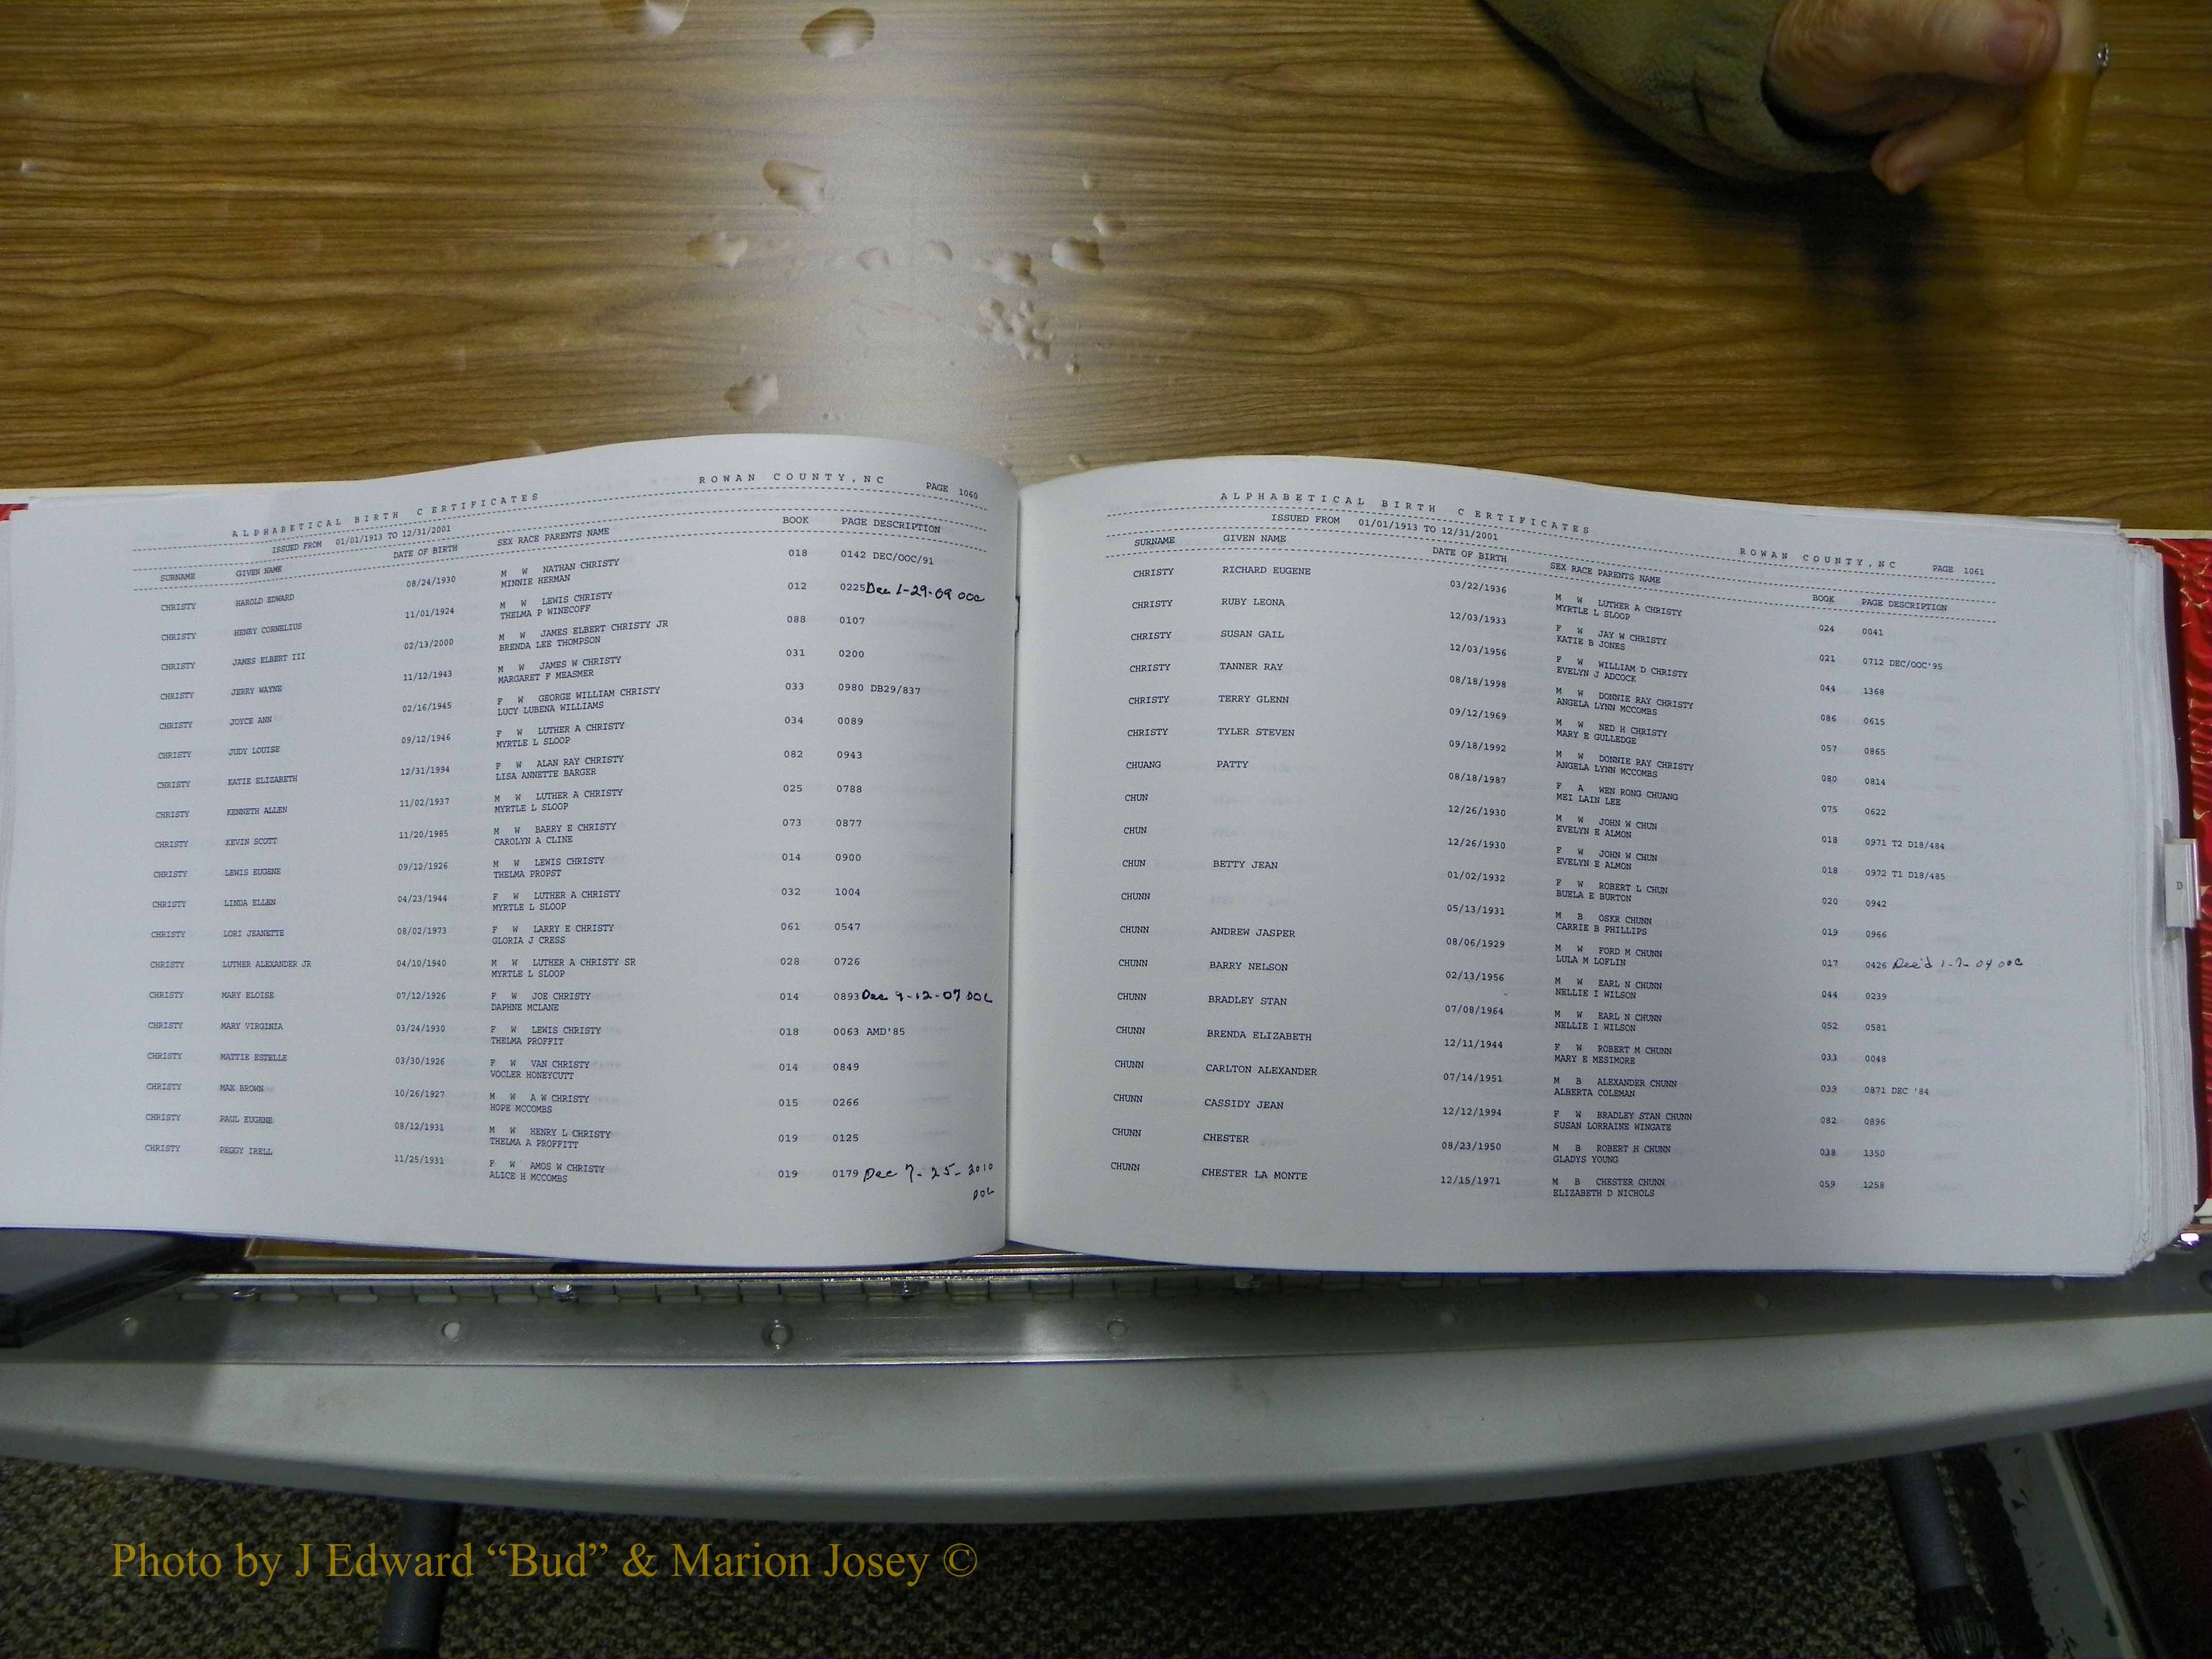 ALPHABETICAL BIRTH CERTIFICATES ROWAN COUNTY,NC PAGE 1060
ISSUED FROM 01/01/1913 TO 12/31/2001
SURNAME GIVEN NAME DATE OF BIRTH SEX RACE PARENTS NAME BOOK PAGE DESCRIPTION
CHRISTY HAROLD EDWARD 08/24/1930 M W NATHAN CHRISTY 018 0142 DEC/OOC/91
MINNIE HERMAN
CHRISTY HENRY CORNELIUS 11/01/1924 M W LEWIS CHRISTY 012 0225 Dec 1-29-09 OOC
THELMA P WINECOFF
CHRISTY JAMES ELBERT III 02/13/2000 M W JAMES ELBERT CHRISTY JR 088 0107
BRENDA LEE THOMPSON
CHRISTY JERRY WAYNE 11/12/1943 M W JAMES W CHRISTY 031 0200
MARGARET F MEASMER
CHRISTY JOYCE ANN 02/16/1945 F W GEORGE WILLIAM CHRISTY 033 0980 DB29/837
LUCY LUBENA WILLIAMS
CHRISTY JUDY LOUISE 09/12/1946 F W LUTHER A CHRISTY 034 0089
MYRTLE L SLOOP
CHRISTY KATIE ELIZABETH 12/31/1994 F W ALAN RAY CHRISTY 082 0943
LISA ANNETTE BARGER
CHRISTY KENNETH ALLEN 11/02/1937 M W LUTHER A CHRISTY 025 0788
MYRTLE L SLOOP
CHRISTY KEVIN SCOTT 11/20/1985 M W BARRY E CHRISTY 073 0877
CAROLYN A CLINE
CHRISTY LEWIS EUGENE 09/12/1926 M W LEWIS CHRISTY 014 0900
THELMA PROPST
CHRISTY LINDA ELLEN 04/23/1944 F W LUTHER A CHRISTY 032 1004
MYRTLE L SLOOP
CHRISTY LORI JEANETTE 08/02/1973 F W LARRY E CHRISTY 061 0547
GLORIA J CRESS
CHRISTY LUTHER ALEXANDER JR 04/10/1940 M W LUTHER A CHRISTY SR 028 0726
MYRTLE L SLOOP
CHRISTY MARY ELOISE 07/12/1926 F W JOE CHRISTY 014 0893 Dec 9-12-07 OOC
DAPHNE MCLANE
CHRISTY MARY VIRGINIA 03/24/1930 F W LEWIS CHRISTY 018 0063 AMD'85
THELMA PROFFIT
CHRISTY MATTIE ESTELLE 03/30/1926 F W VAN CHRISTY 014 0849
VOCLER HONEYCUTT
CHRISTY MAX BROWN 10/26/1927 M W A W CHRISTY 015 0266
HOPE MCCOMBS
CHRISTY PAUL EUGENE 08/12/1931 M W HENRY L CHRISTY 019 0125
THELMA A PROFFITT
CHRISTY PEGGY IRELL 11/25/1931 F W AMOS W CHRISTY 019 0179 Dec 7-25-2010
ALICE H MCCOMBS OOC
ALPHABETICAL BIRTH CERTIFICATES ROWAN COUNTY,NC PAGE 1061
ISSUED FROM 01/01/1913 TO 12/31/2001
SURNAME GIVEN NAME DATE OF BIRTH SEX RACE PARENTS NAME BOOK PAGE DESCRIPTION
CHRISTY RICHARD EUGENE 03/22/1936 M W LUTHER A CHRISTY 024 0041
MYRTLE L SLOOP
CHRISTY RUBY LEONA 12/03/1933 F W JAY W CHRISTY 021 0712 DEC/OOC'95
KATIE B JONES
CHRISTY SUSAN GAIL 12/03/1956 F W WILLIAM D CHRISTY 044 1368
EVELYN J ADCOCK
CHRISTY TANNER RAY 08/18/1998 M W DONNIE RAY CHRISTY 086 0615
ANGELA LYNN MCCOMBS
CHRISTY TERRY GLENN 09/12/1969 M W NED H CHRISTY 057 0865
MARY E GULLEDGE
CHRISTY TYLER STEVEN 09/18/1992 M W DONNIE RAY CHRISTY 080 0814
ANGELA LYNN MCCOMBS
CHUANG PATTY 08/18/1987 F A WEN RONG CHUANG 075 0622
MEI LAIN LEE
CHUN 12/26/1930 M W JOHN W CHUN 018 0971 T2 D18/484
EVELYN E ALMON
CHUN 12/26/1930 F W JOHN W CHUN 018 0972 T1 D18/485
EVELYN E ALMON
CHUN BETTY JEAN 01/02/1932 F W ROBERT L CHUN 020 0942
BUELA E BURTON
CHUNN 05/13/1931 M B OSKR CHUNN 019 0966
CARRIE B PHILLIPS
CHUNN ANDREW JASPER 08/06/1929 M W FORD M CHUNN 017 0426 Dec'd 1-7-04 OOC
LULA M LOFLIN
CHUNN BARRY NELSON 02/13/1956 M W EARL N CHUNN 044 0239
NELLIE I WILSON
CHUNN BRADLEY STAN 07/08/1964 M W EARL N CHUNN 052 0581
NELLIE I WILSON
CHUNN BRENDA ELIZABETH 12/11/1944 F W ROBERT M CHUNN 033 0048
MARY E MESIMORE
CHUNN CARLTON ALEXANDER 07/14/1951 M B ALEXANDER CHUNN 039 0871 DEC '84
ALBERTA COLEMAN
CHUNN CASSIDY JEAN 12/12/1994 F W BRADLEY STAN CHUNN 082 0896
SUSAN LORRAINE WINGATE
CHUNN CHESTER 08/23/1950 M B ROBERT H CHUNN 038 1350
GLADYS YOUNG
CHUNN CHESTER LA MONTE 12/15/1971 M B CHESTER CHUNN 059 1258
ELIZABETH D NICHOLS
D
Photo by J Edward “Bud” & Marion Josey ©